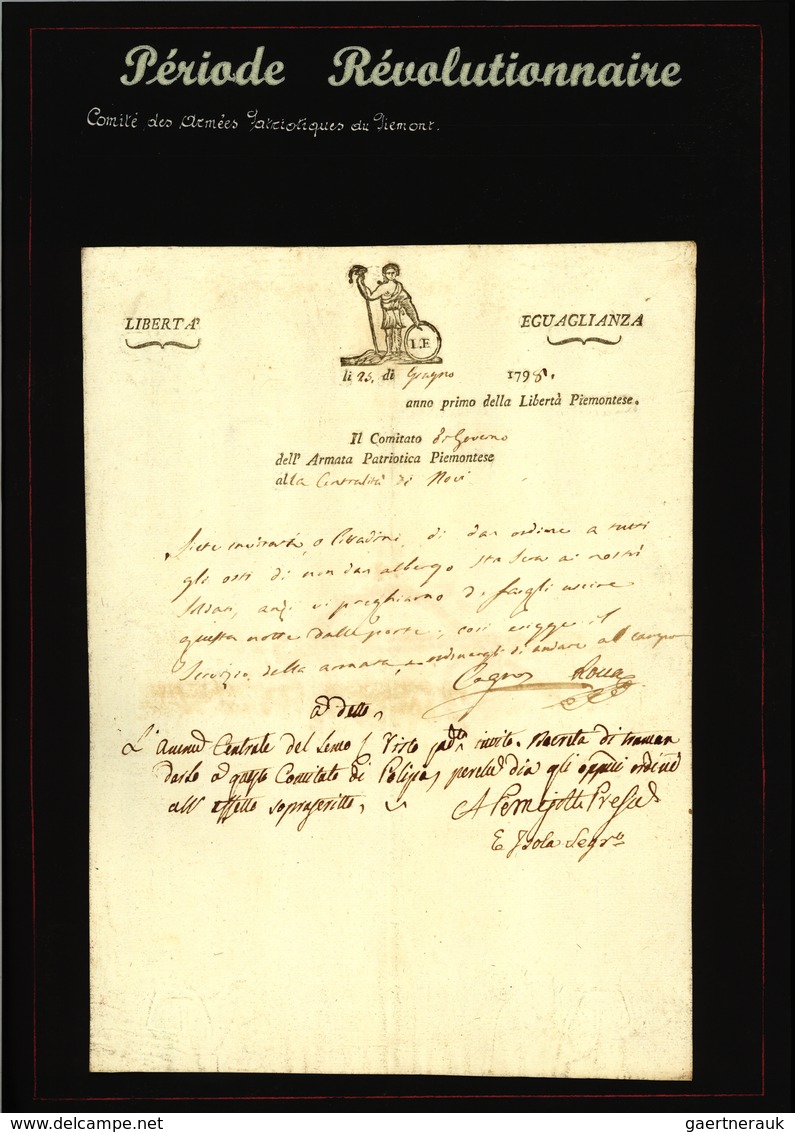 Période Révolutionnaire
Comité des Armées Patriotiques du Piemont.
LIBERTA'
EGUAGLIANZA
L.E
li 25. di Giugno 1798.
anno primo della Libertà Piemontese.
Il Comitato di Governo
dell' Armata Patriotica Piemontese
alla Centralità di Novi
Siete invitati, o Cittadini, di dar ordine a tutti
gli osti di non dar albergo sta sera ai nostri
Soldati, anzi vi preghiamo di fargli uscire
questa notte dalle porte, così esigge il
Servizio della armata, e ordinargli di andare al campo
Rocca
a detto
L' Centrale del Lemo Visto invito. Decreta di traman
darlo a questo Comitato di Polizia, perchè dia gli ordini
all' effetto soprascritto,
E Isola Segr.o
gaertnerauk